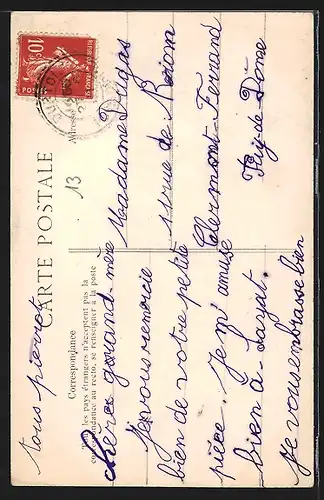 CARTE POSTALE
Correspondance
Tous les pays étrangers n'acceptent pas la
correspondance au recto, se renseigner à la poste
Adresse
10c
POSTES
13
Chère grand-mère
Je vous remercie
bien de votre petite
pièce. Je m'amuse
bien à Sayat.
Je vous embrasse bien
tous pierrot
Madame Dugas
rue de
Clermont-Ferrand
Puy-de-Dôme